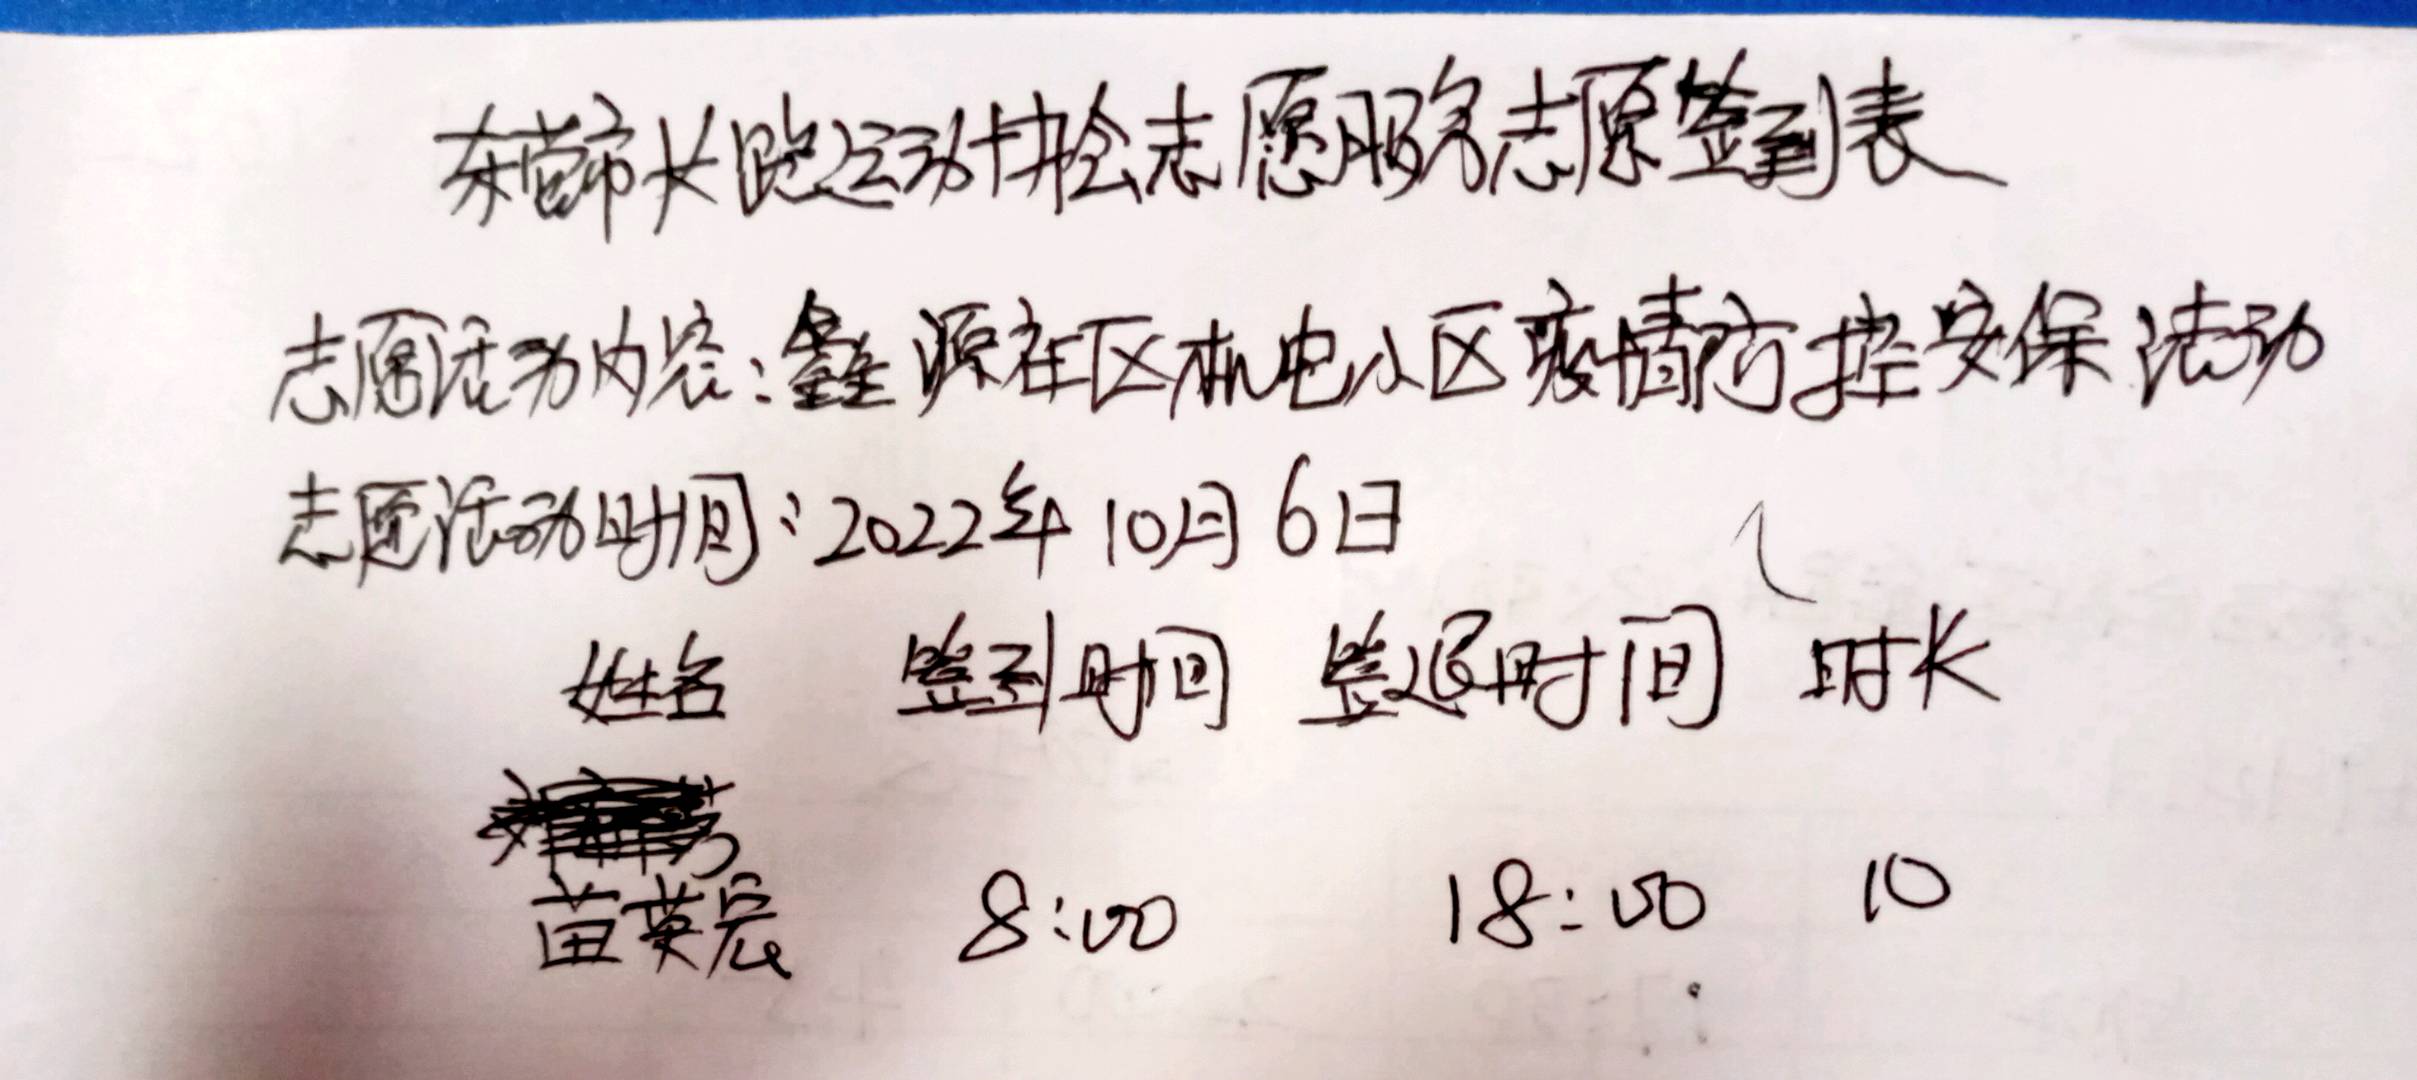 东营市长跑运动协会志愿服务志原签到表
志愿活动内容:鑫源社区机电小区疫情防控安保活动
志愿活动时间:2022年10月6日
姓名 签到时间 签退时间 时长
苗英宏 8:00 18:00 10